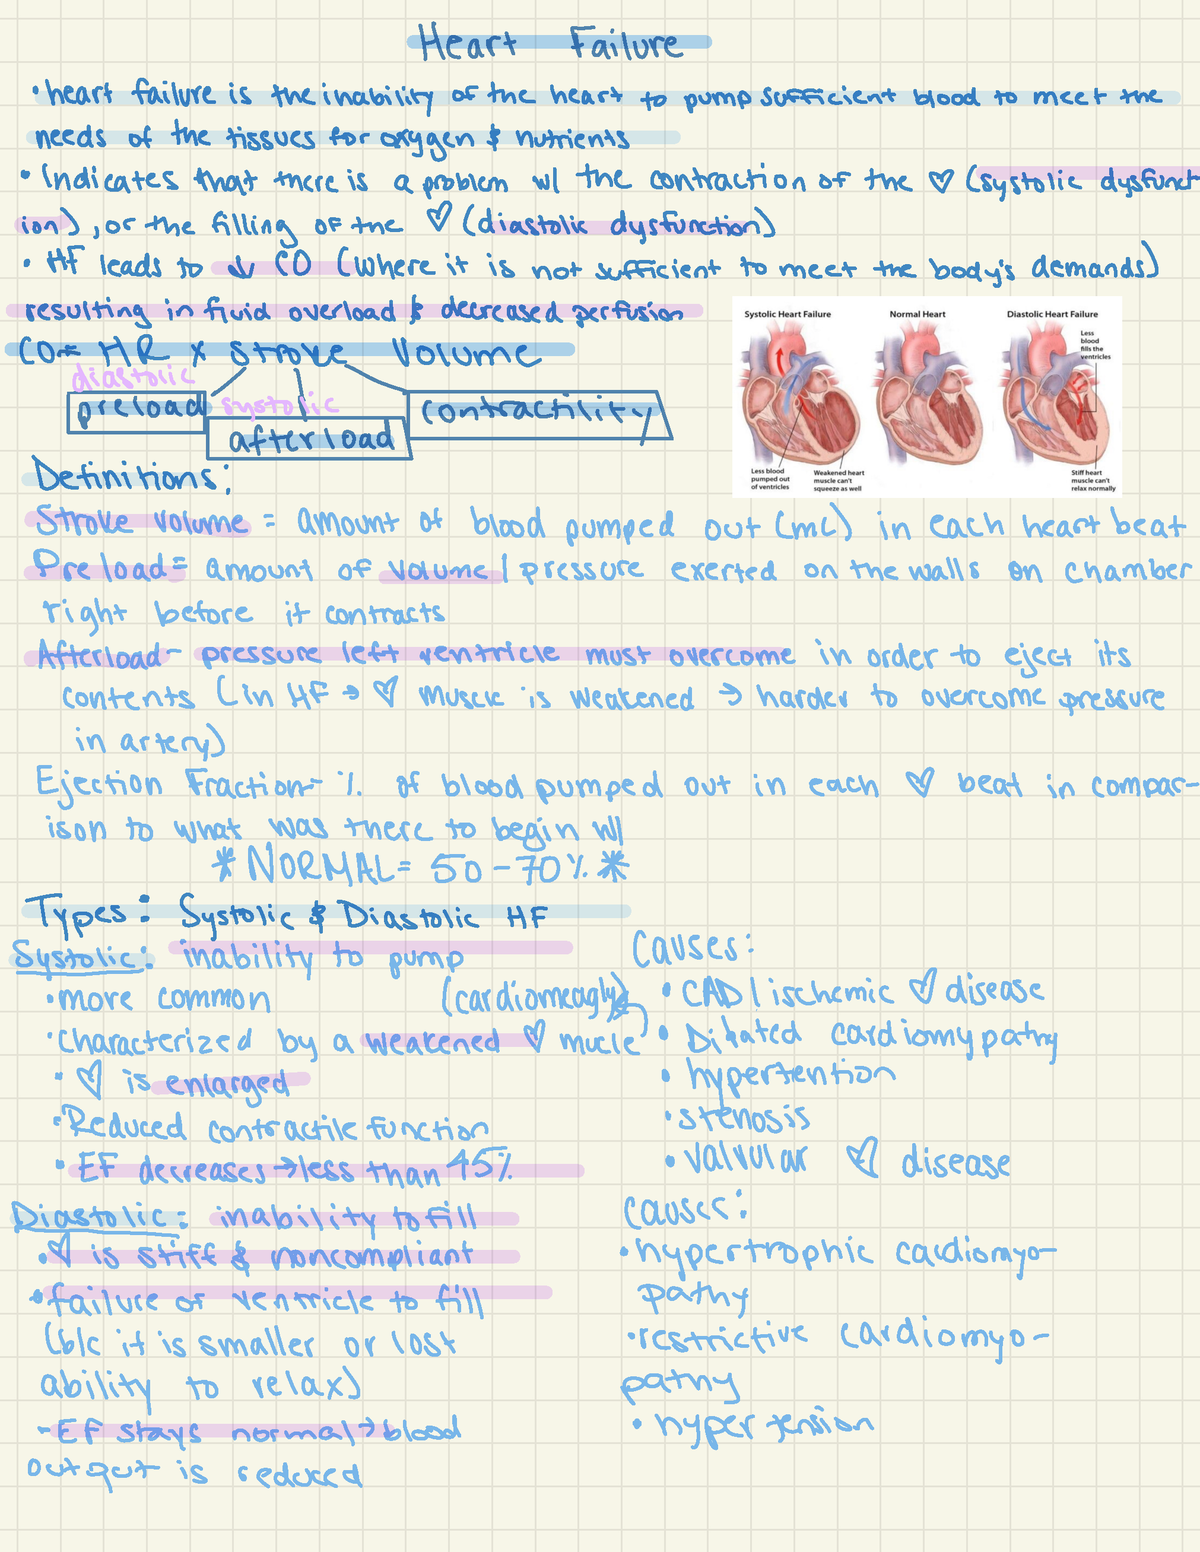 Heart Failure
• heart failure is the inability of the heart to pump sufficient blood to meet the
needs of the tissues for oxygen & nutrients
• Indicates that there is a problem w/ the contraction of the ♡ (systolic dysfunct
ion), or the filling of the ♡ (diastolic dysfunction)
• HF leads to ↓ CO (where it is not sufficient to meet the body's demands)
resulting in fluid overload & decreased perfusion
CO = HR x Stroke Volume
diastolic
preload
systolic
afterload
contractility
Systolic Heart Failure
Normal Heart
Diastolic Heart Failure
Less
blood
fills the
ventricles
Less blood
pumped out
of ventricles
Weakened heart
muscle can't
squeeze as well
Stiff heart
muscle can't
relax normally
Definitions:
Stroke volume = amount of blood pumped out (mL) in each heart beat
Preload = amount of volume / pressure exerted on the walls on chamber
right before it contracts
Afterload - pressure left ventricle must overcome in order to eject its
contents (in HF → ♡ muscle is weakened → harder to overcome pressure
in artery)
Ejection Fraction - % of blood pumped out in each ♡ beat in compar-
ison to what was there to begin w/
* NORMAL = 50 - 70% *
Types: Systolic & Diastolic HF
Systolic: inability to pump
• more common (cardiomeagly)
• Characterized by a weakened ♡ mucle
• ♡ is enlarged
• Reduced contractile function
• EF decreases → less than 45%
Causes:
• CAD / ischemic ♡ disease
• Dilated cardiomypathy
• hypertention
• stenosis
• valvular ♡ disease
Diastolic: inability to fill
• ♡ is stiff & noncompliant
• failure of ventricle to fill
(b/c it is smaller or lost
ability to relax)
- EF stays normal → blood
output is reduced
causes:
• hypertrophic cardiomyo-
pathy
• restrictive cardiomyo-
pathy
• hypertension